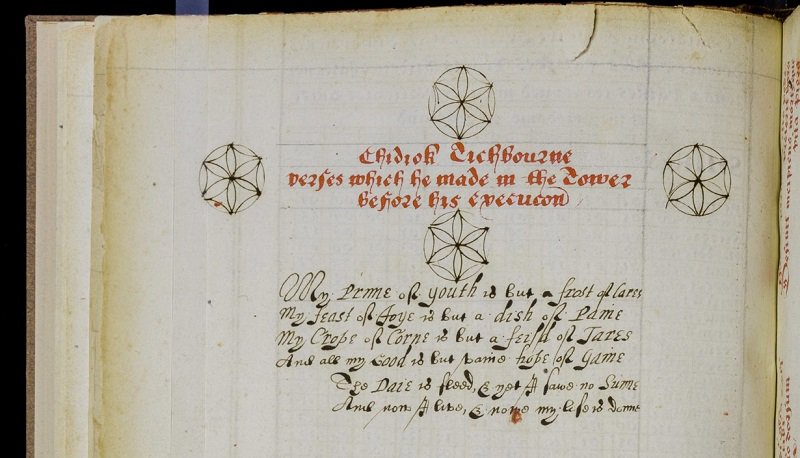 Chidiok Tichbourne
verses which he made in the Tower
before his execucon
My Prime of youth is but a frost of Cares
My feast of Joye is but a dish of Paine
My Crope of Corne is but a feild of Tares
And all my Good is but vaine hope of Gaine
The Daie is fleed, & yet I sawe no Sunne
And now I live, & nowe my life is donne